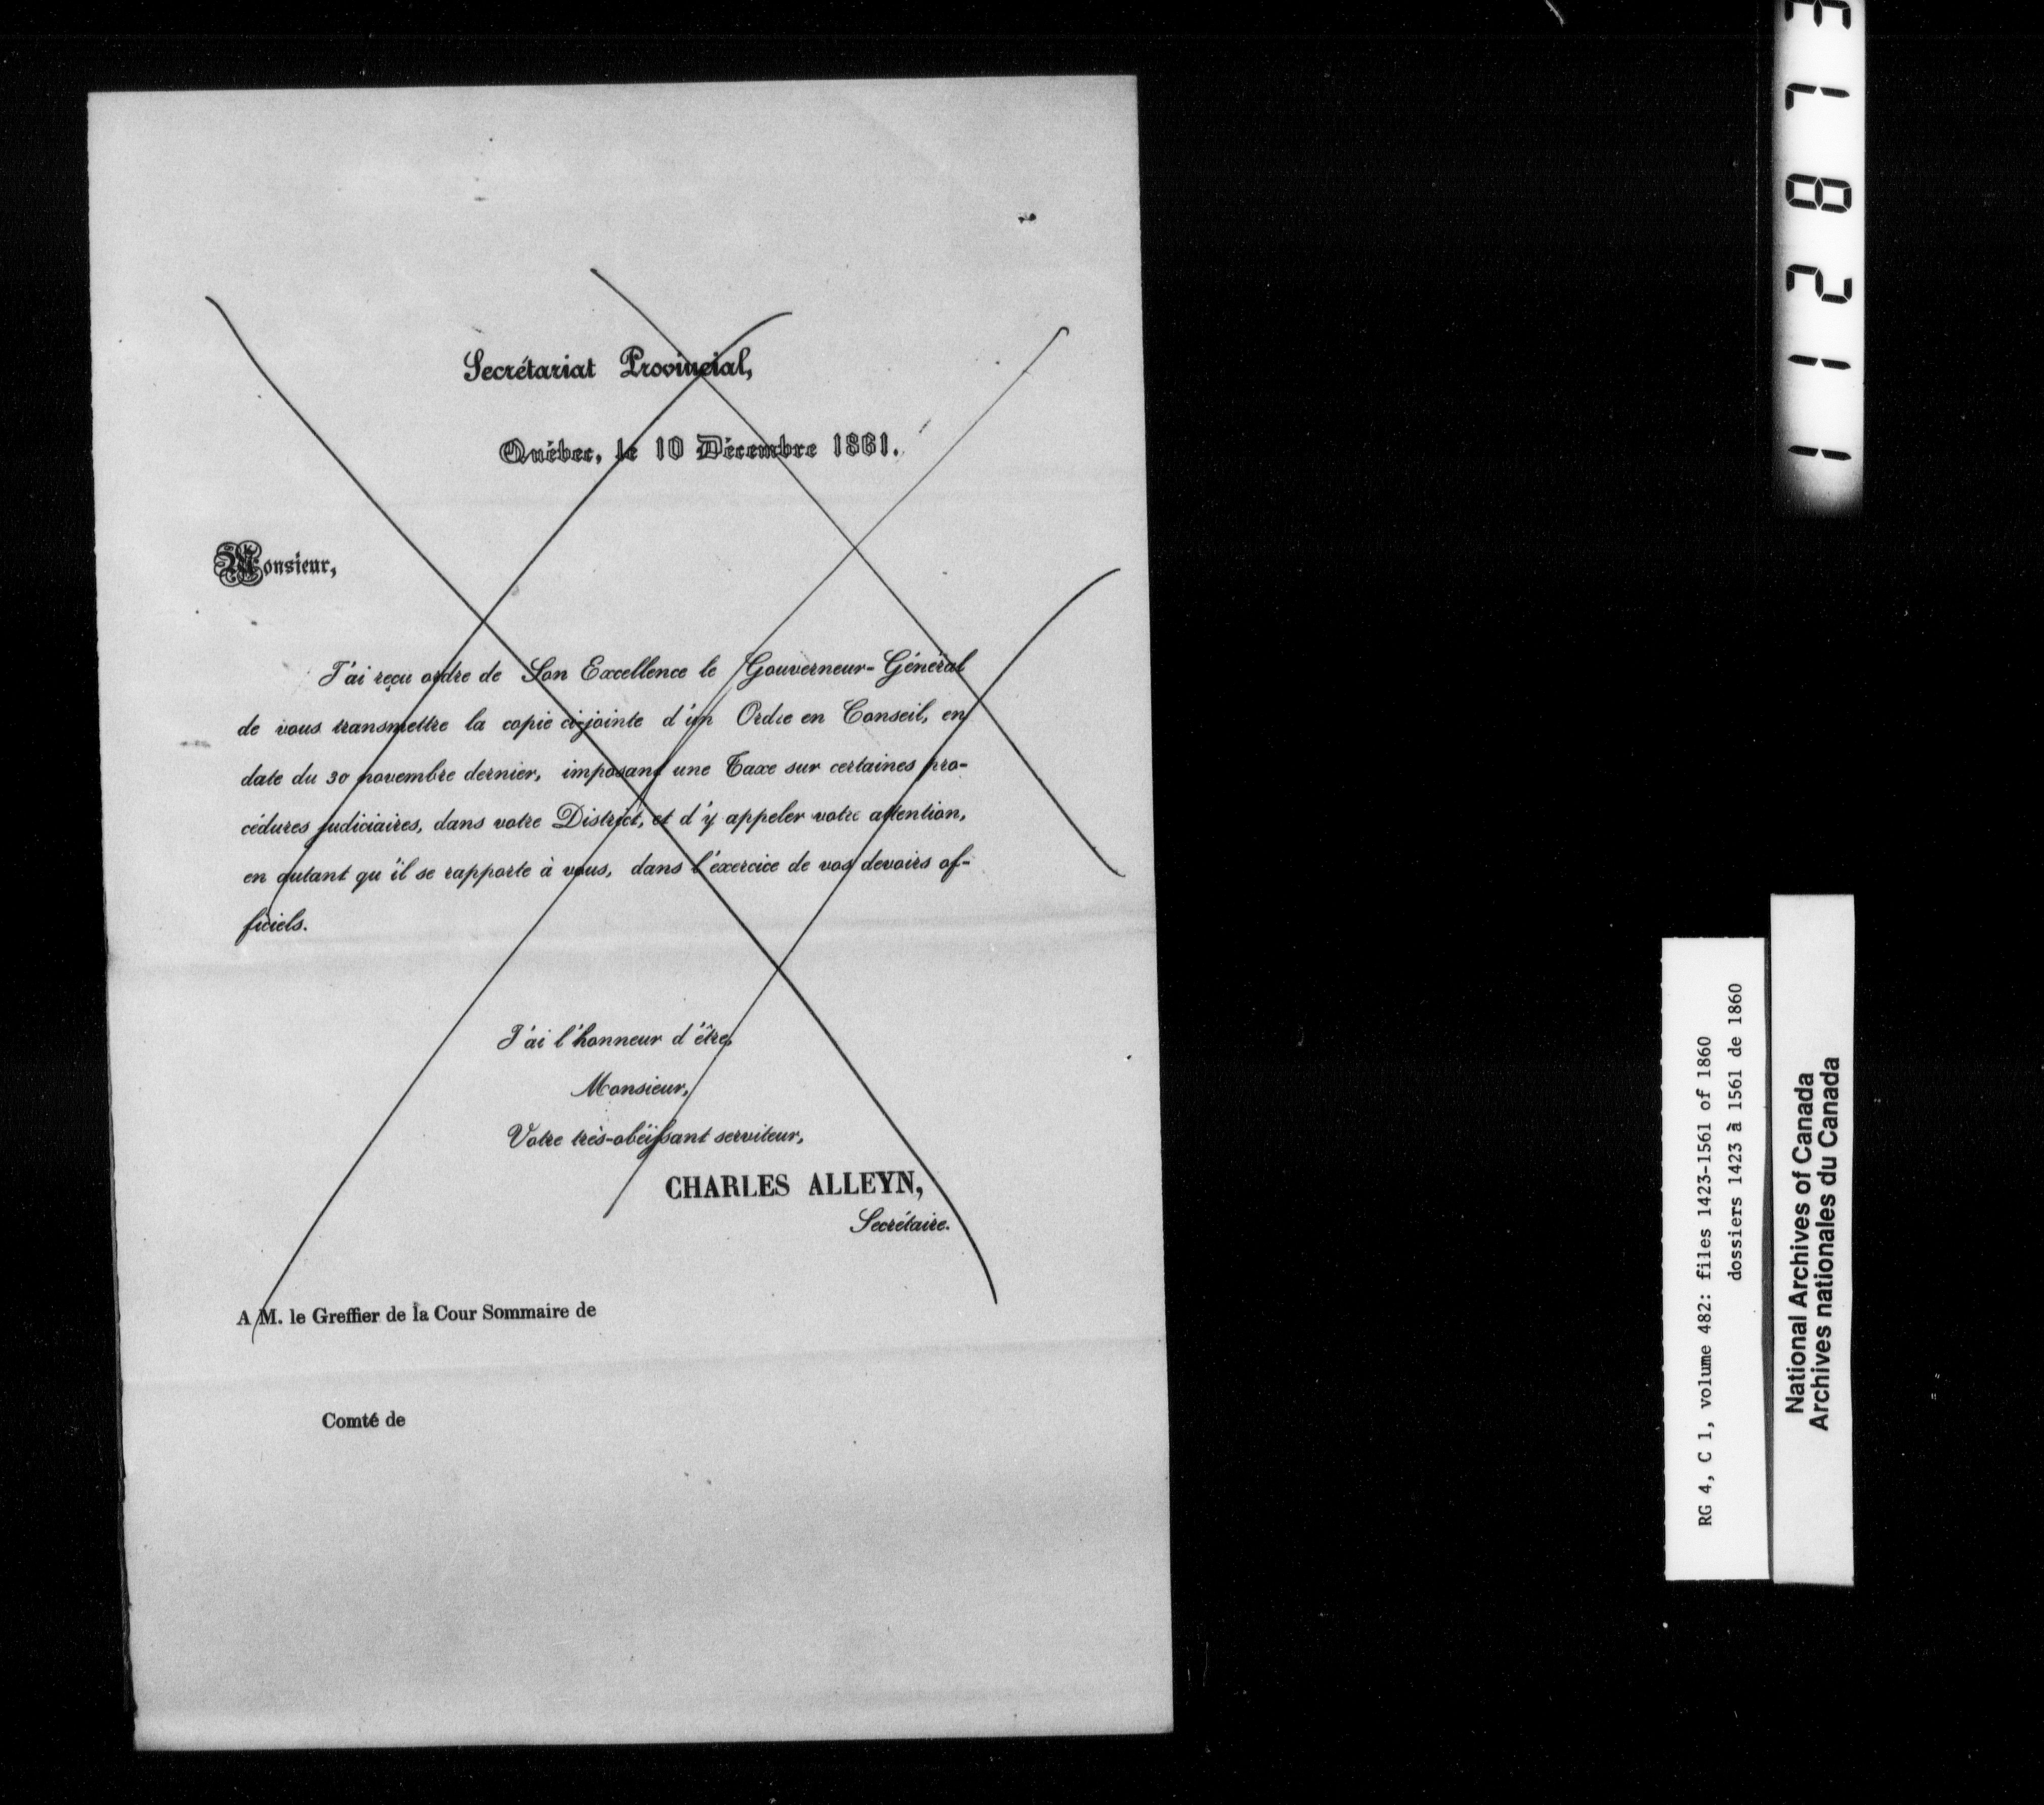 Secrétariat Provincial,
Québec, le 10 Décembre 1861.
Monsieur,
J'ai reçu ordre de Son Excellence le Gouverneur-Général
de vous transmettre la copie ci-jointe d'un Ordre en Conseil, en
date du 30 novembre dernier, imposant une Taxe sur certaines pro-
cédures judiciaires, dans votre District, et d'y appeler votre attention,
en autant qu'il se rapporte à vous, dans l'exercice de vos devoirs of-
ficiels.
J'ai l'honneur d'être,
Monsieur,
Votre très-obéissant serviteur,
CHARLES ALLEYN,
Secrétaire.
A M. le Greffier de la Cour Sommaire de
Comté de
112873
RG 4, C 1, volume 482: files 1423-1561 of 1860
dossiers 1423 à 1561 de 1860
National Archives of Canada
Archives nationales du Canada